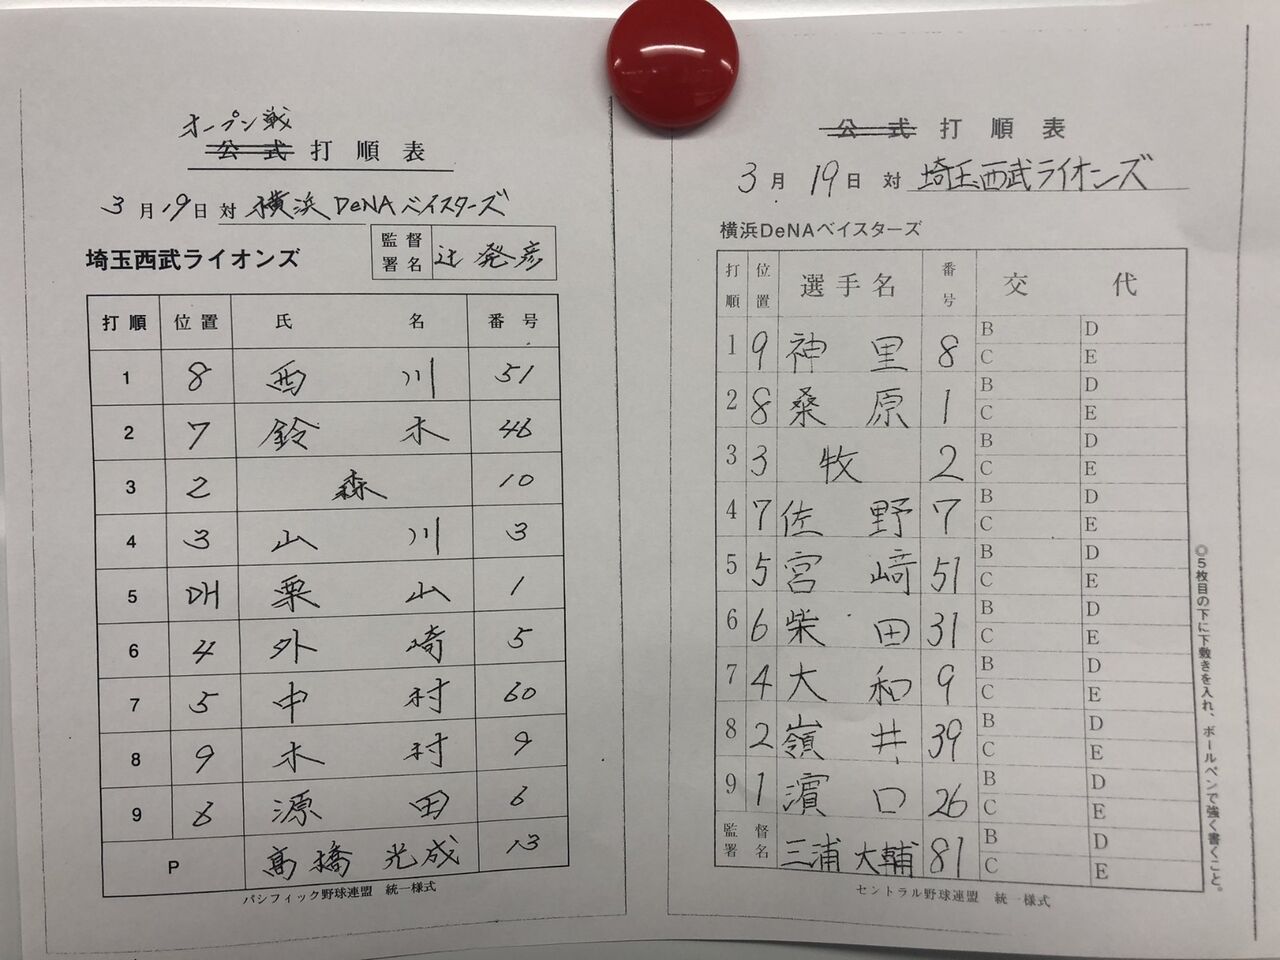 オープン戦
公式 打順表
3月19日 対 横浜DeNAベイスターズ
埼玉西武ライオンズ 監督署名 辻 発彦
打順 位置 氏名 番号
1 8 西川 51
2 7 鈴木 46
3 2 森 10
4 3 山川 3
5 DH 栗山 1
6 4 外崎 5
7 5 中村 60
8 9 木村 9
9 6 源田 6
P 髙橋光成 13
パシフィック野球連盟 統一様式
公式 打順表
3月19日 対 埼玉西武ライオンズ
横浜DeNAベイスターズ
打順 位置 選手名 番号 交代
1 9 神里 8 B D C E
2 8 桑原 1 B D C E
3 3 牧 2 B D C E
4 7 佐野 7 B D C E
5 5 宮﨑 51 B D C E
6 6 柴田 31 B D C E
7 4 大和 9 B D C E
8 2 嶺井 39 B D C E
9 1 濵口 26 B D C E
監督署名 三浦大輔 81 B D C E
セントラル野球連盟 統一様式
◎5枚目の下に下敷きを入れ、ボールペンで強く書くこと。